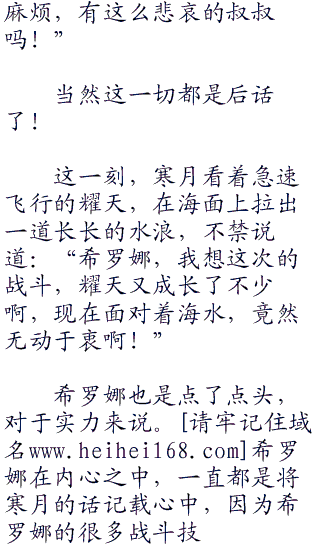 麻烦，有这么悲哀的叔叔
吗！”
当然这一切都是后话
了！
这一刻，寒月看着急速
飞行的耀天，在海面上拉出
一道长长的水浪，不禁说
道：“希罗娜，我想这次的
战斗，耀天又成长了不少
啊，现在面对着海水，竟然
无动于衷啊！”
希罗娜也是点了点头，
对于实力来说。[请牢记住域
名www.heihei168.com]希罗
娜在内心之中，一直都是将
寒月的话记载心中，因为希
罗娜的很多战斗技